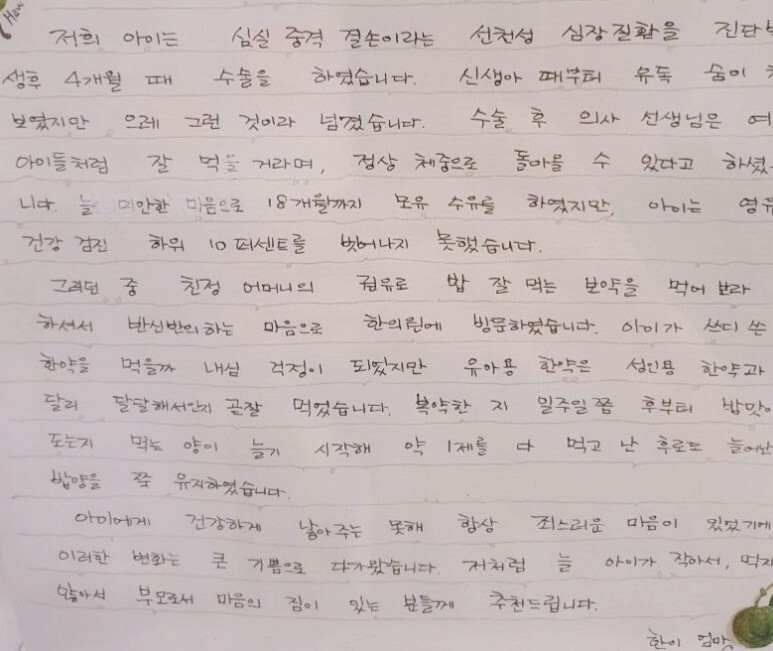 How
저희 아이는 심실 중격 결손이라는 선천성 심장질환을 진단
생후 4개월 때 수술을 하였습니다. 신생아 때부터 유독 숨이
보였지만 으레 그런 것이라 넘겼습니다. 수술 후 의사 선생님은 여
아이들처럼 잘 먹을 거라며, 정상 체중으로 돌아올 수 있다고 하셨
니다. 늘 미안한 마음으로 18개월까지 모유 수유를 하였지만, 아이는 영유
건강 검진 하위 10퍼센트를 벗어나지 못했습니다.
그러던 중 친정 어머니의 권유로 밥 잘 먹는 보약을 먹여 보라
하셔서 반신반의하는 마음으로 한의원에 방문하였습니다. 아이가 쓰디 쓴
한약을 먹을까 내심 걱정이 되었지만 유아용 한약은 성인용 한약과
달리 달달해서인지 곧잘 먹었습니다. 복약한 지 일주일쯤 후부터 밥맛이
도는지 먹는 양이 늘기 시작해 약 1제를 다 먹고 난 후로도 늘어난
밥양을 쭉 유지하였습니다.
아이에게 건강하게 낳아주는 못해 항상 죄스러운 마음이 있었기에
이러한 변화는 큰 기쁨으로 다가왔습니다. 저처럼 늘 아이가 작아서,
않아서 부모로서 마음의 짐이 있는 분들께 추천드립니다.
한이 엄마